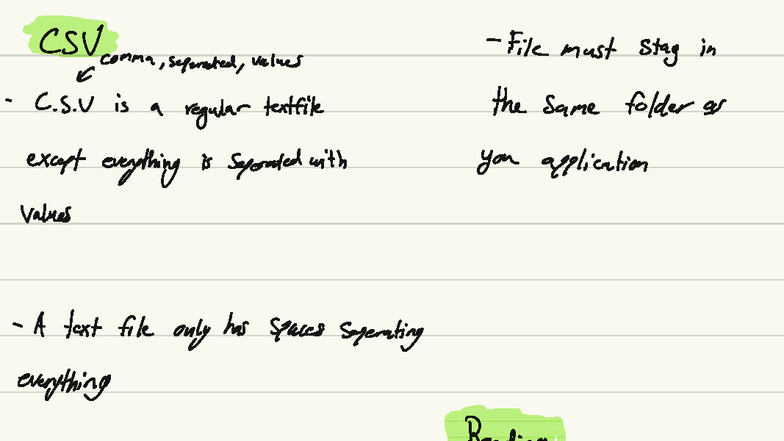 CSV
comma, seperated, values
- C.S.V is a regular textfile
except everything is seperated with
values
- A text file only has spaces seperating
everything
- File must stay in
the same folder as
you application
Reading